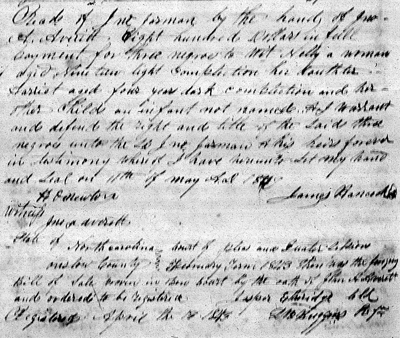 of Jno farman by the hands of Jno
A. Averett Eight hundred Dollars in full
payment for three negroes to Wit Nelly a woman
aged Nineteen light Complection her daughter
Harriet aged four years dark complection and her
other Childs an infant not named & I Warrant
and defend the right and title of the said three
negroes unto the Sd Jno farman & his heirs forever
in testimony whereof I have hereunto Set my hand
and Seal on 11th of may A.d.
James Hancock
Witness
Jno A Averett
State of North Carolina Court of Pleas and Quarter Sessions
onslow County February Term 1843 Then was the foregoing
Bill of Sale proven in open Court by the oath of Averett
and ordered to be registered Jasper Etheridge Clk
Registered April the 1843 Huggins